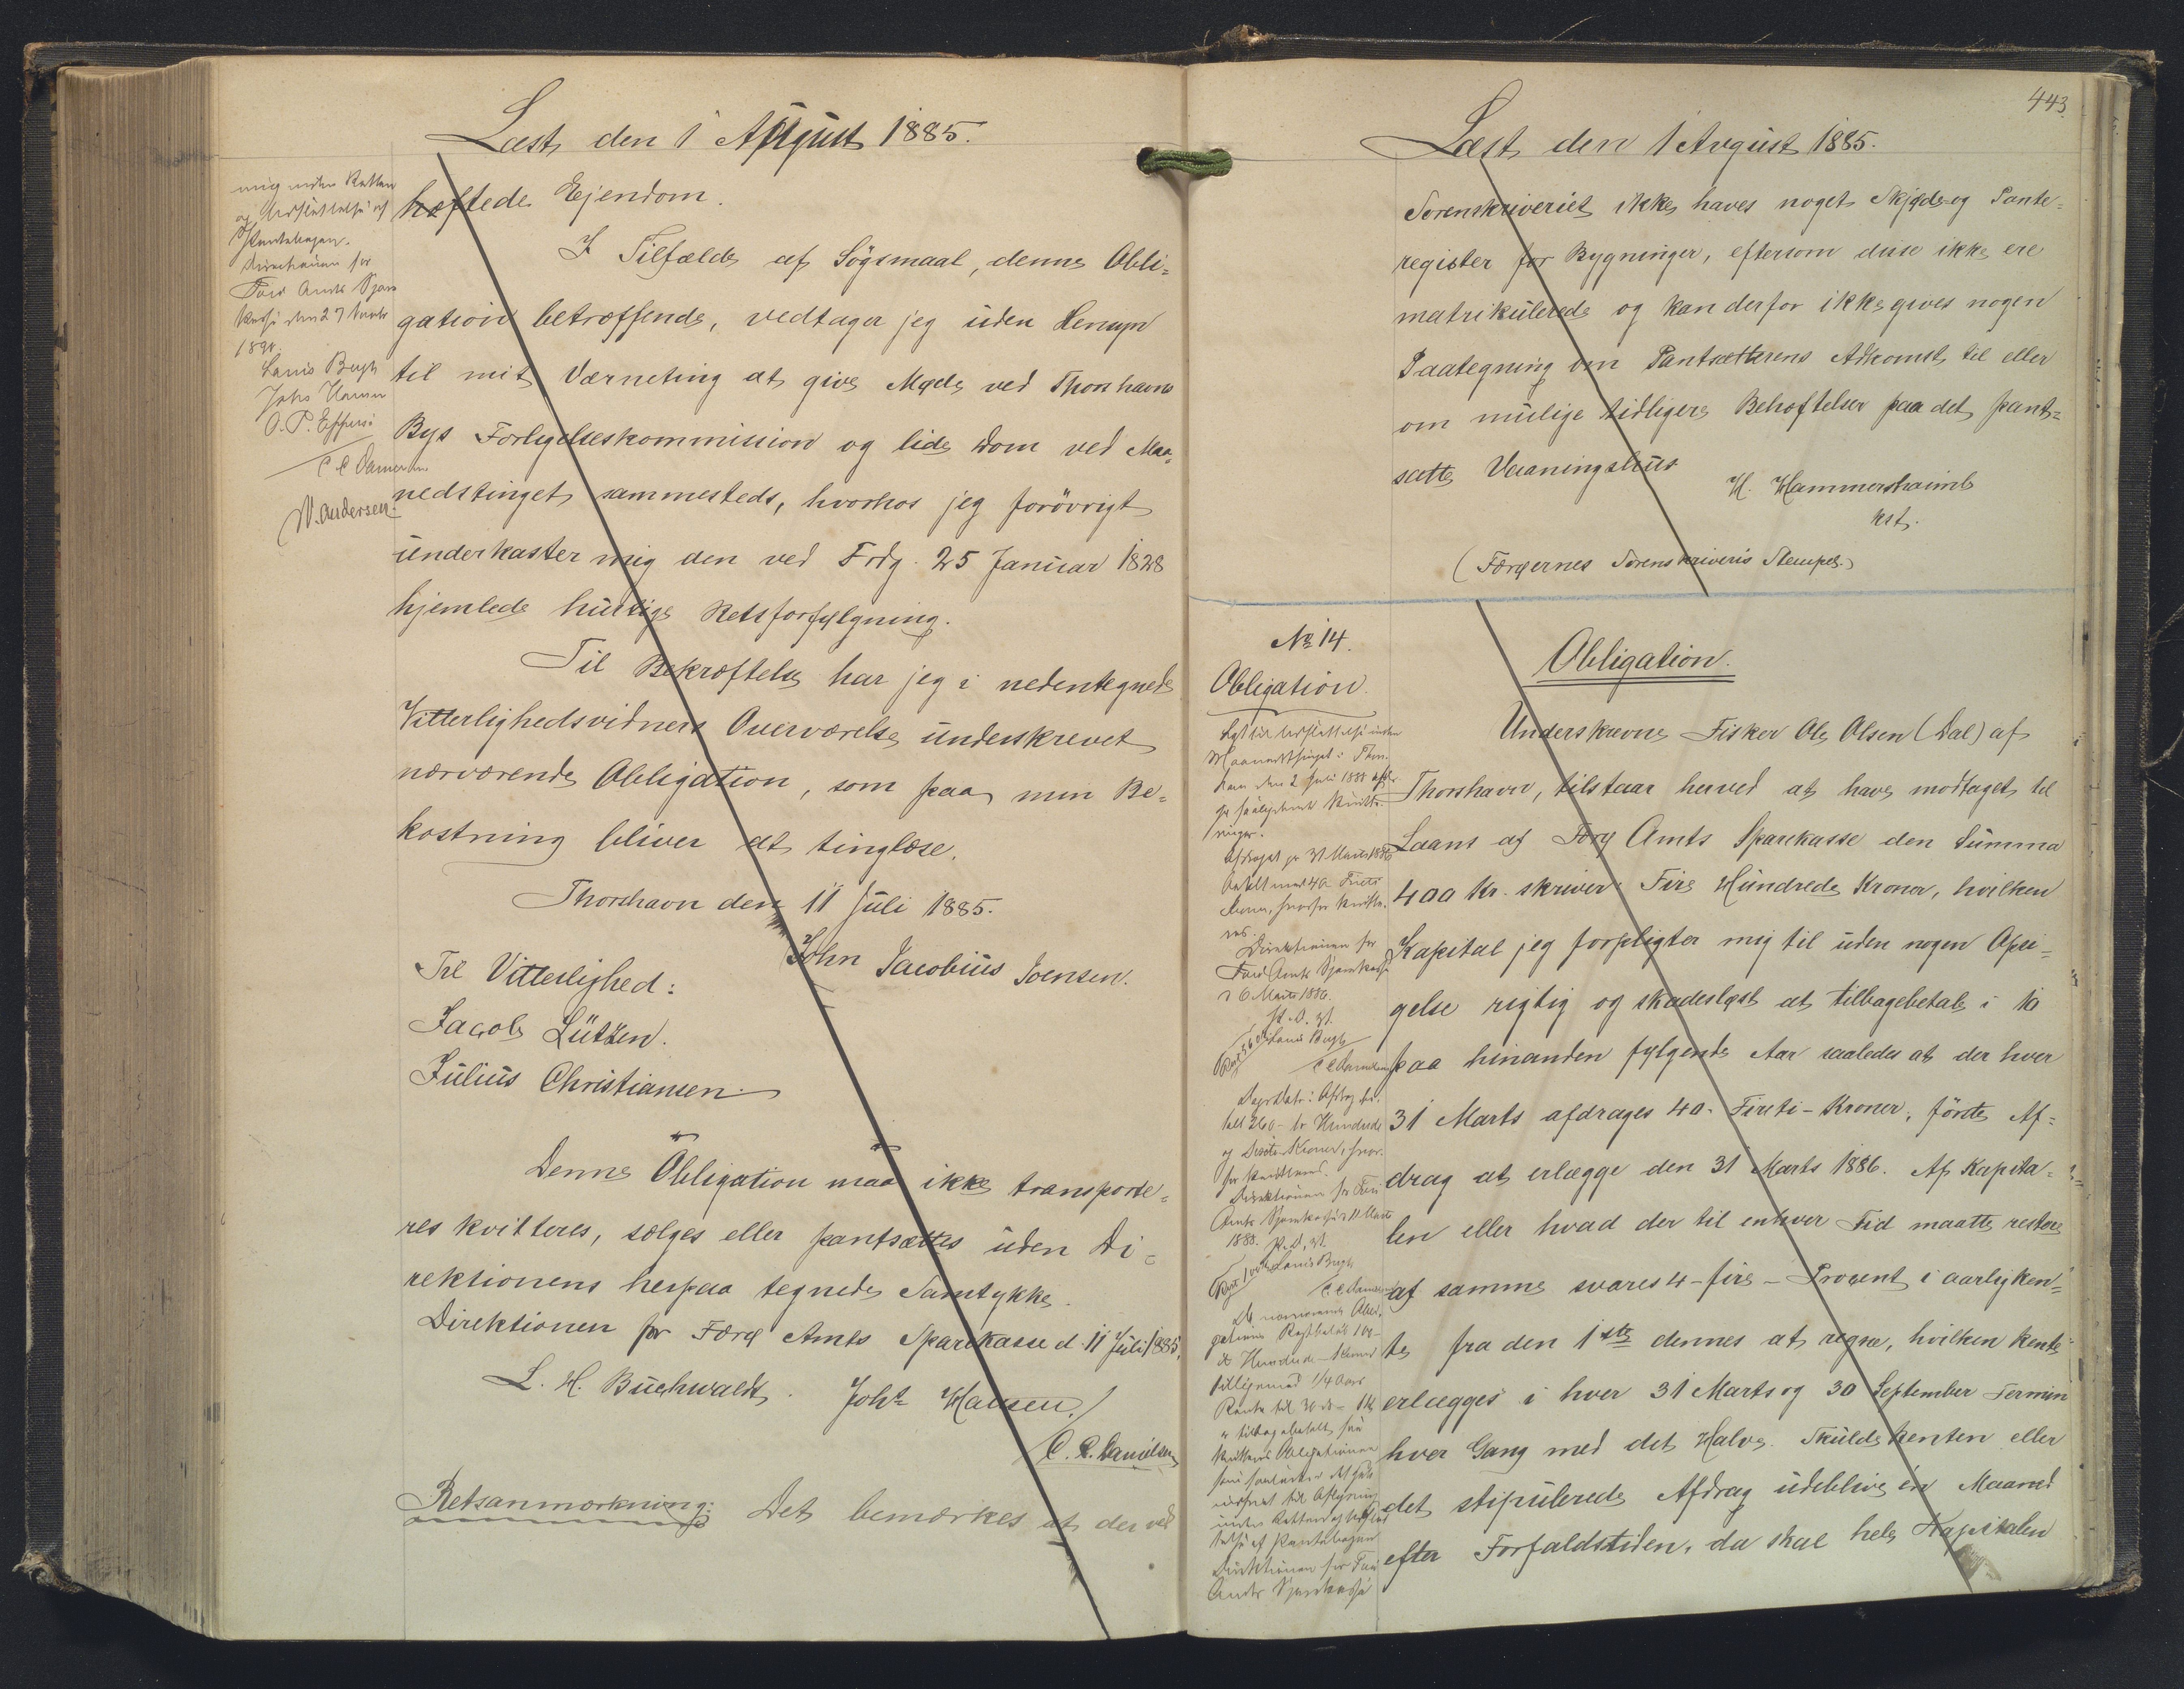 Læst den 1 August 1885.
mig inden Retten
og Udslettelse af
Pantebogen.
Direktionen for
Færø Amts Spare
kasse den 27 Marts
189
Louis Bugh
Johs Hansen
O. P. Effersø
C C Danielsen
N. Andersen
hæftede Ejendom.
I Tilfælde af Sögsmaal, denne Obli=
gation betræffende, vedtager jeg uden Hensyn
til mit Værneting at give Møde ved Thorshavns
Bys Forligelseskommission og lide Dom ved Maa=
nedstinget sammesteds, hvorhos jeg forövrigt
underkaster mig den ved Frdg. 25 Januar 1828
hjemlede hurtige Retsforfølgning.
Til Bekræftelse har jeg i nedentegnede
Vitterlighedsvidners Overværelse underskrevet
nærværende Obligation, som paa min Be=
kostning bliver at tinglæse.
Thorshavn den 11 Juli 1885.
John Jacobius Joensen.
Til Vitterlighed:
Jacob Lützen.
Julius Christiansen
Denne Obligation maa ikke transporte=
res kvitteres, sælges eller pantsættes uden Di=
rektionens herpaa tegnede Samtykke.
Direktionen for Færø Amts Sparekasse d. 11 Juli 1885,
L. H. Buchwaldt. Johs Hansen.
C. C. Danielsen
Retsanmærkning: Det bemærkes at der ved
443
Læst den 1 August 1885.
Sorenskriveriet ikke haves noget Skjøde og Pante=
register for Bygninger, eftersom disse ikke ere
matrikulerede og kan derfor ikke gives nogen
Paategning om Pantsætterens Adkomst til eller
om mulige tidligere Behæftelser paa det pant=
satte Vaaningshus
H. Hammershaimb
kst.
(Færøernes Sorenskriveris Stempel.)
No 14.
Obligation.
Lyst til Udslettelse inden
Maanedsthinget i Thors
havn den 2 Juli 1888 efter
Afdraget pr 31 Marts 1886
betalt med 40 Firti
Kroner, hvorfor kvitte-
res.
Direktionen for
Færø Amts Sparekasse
26 Marts 1886.
Louis Bugh
C C Danielsen
Dags Dato i Afdrag be-
talt 260 - to Hundrede
og Kroner, hvor-
for kvitteres.
Direktionen for Færø
Amts Sparekasse 11 Marts
1888.
Louis Bugh
C C Danielsen
nærværende Obli-
gations Restbeløb 100 -
et Hundrede - Kroner
tilligemed 1/4 Aars
Rente
tilbagebetalt, saa
kvitteres Obligationen
inden Retten og Udslet-
telse af Pantebogen
Direktionen for Færø
Amts Sparekasse
Obligation.
Underskrevne Fisker Ole Olsen (Dal) af
Thorshavn, tilstaar herved at have modtaget til
Laans af Færø Amts Sparekasse den Summa
400 Kr. skriver Fire Hundrede Kroner, hvilken
Kapital jeg forpligter mig til uden nogen Opsi=
gelse rigtig og skadesløst at tilbagebetale i 10
paa hinanden følgende Aar saaledes at der hver
31 Marts afdrages 40 - Firti - Kroner, förste Af=
drag at erlægge den 31 Marts 1886. Af Kapita=
len eller hvad der til enhver Tid maatte restere
af samme svares 4 - fire - Procent i aarlig Ren=
te fra den 1ste dennes at regne, hvilken Rente
erlægges i hver 31 Marts og 30 September Termin
hver Gang med det Halve. Skulde Renten eller
det stipulerede Afdrag udeblive én Maaned
efter Forfaldstiden, da skal hele Kapitalen